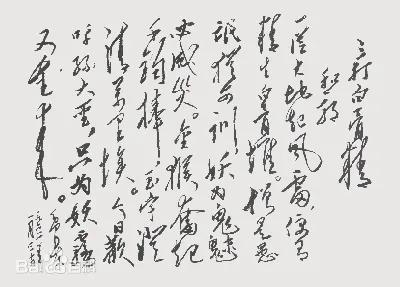 三打白骨精
一从大地起风雷,便有
精生白骨堆。僧是愚
氓犹可训,妖为鬼蜮
必成災。金猴奋起
千钧棒,玉宇澄
清万里埃。今日歡
呼孙大聖,只为妖霧
又重来。
Bai百科